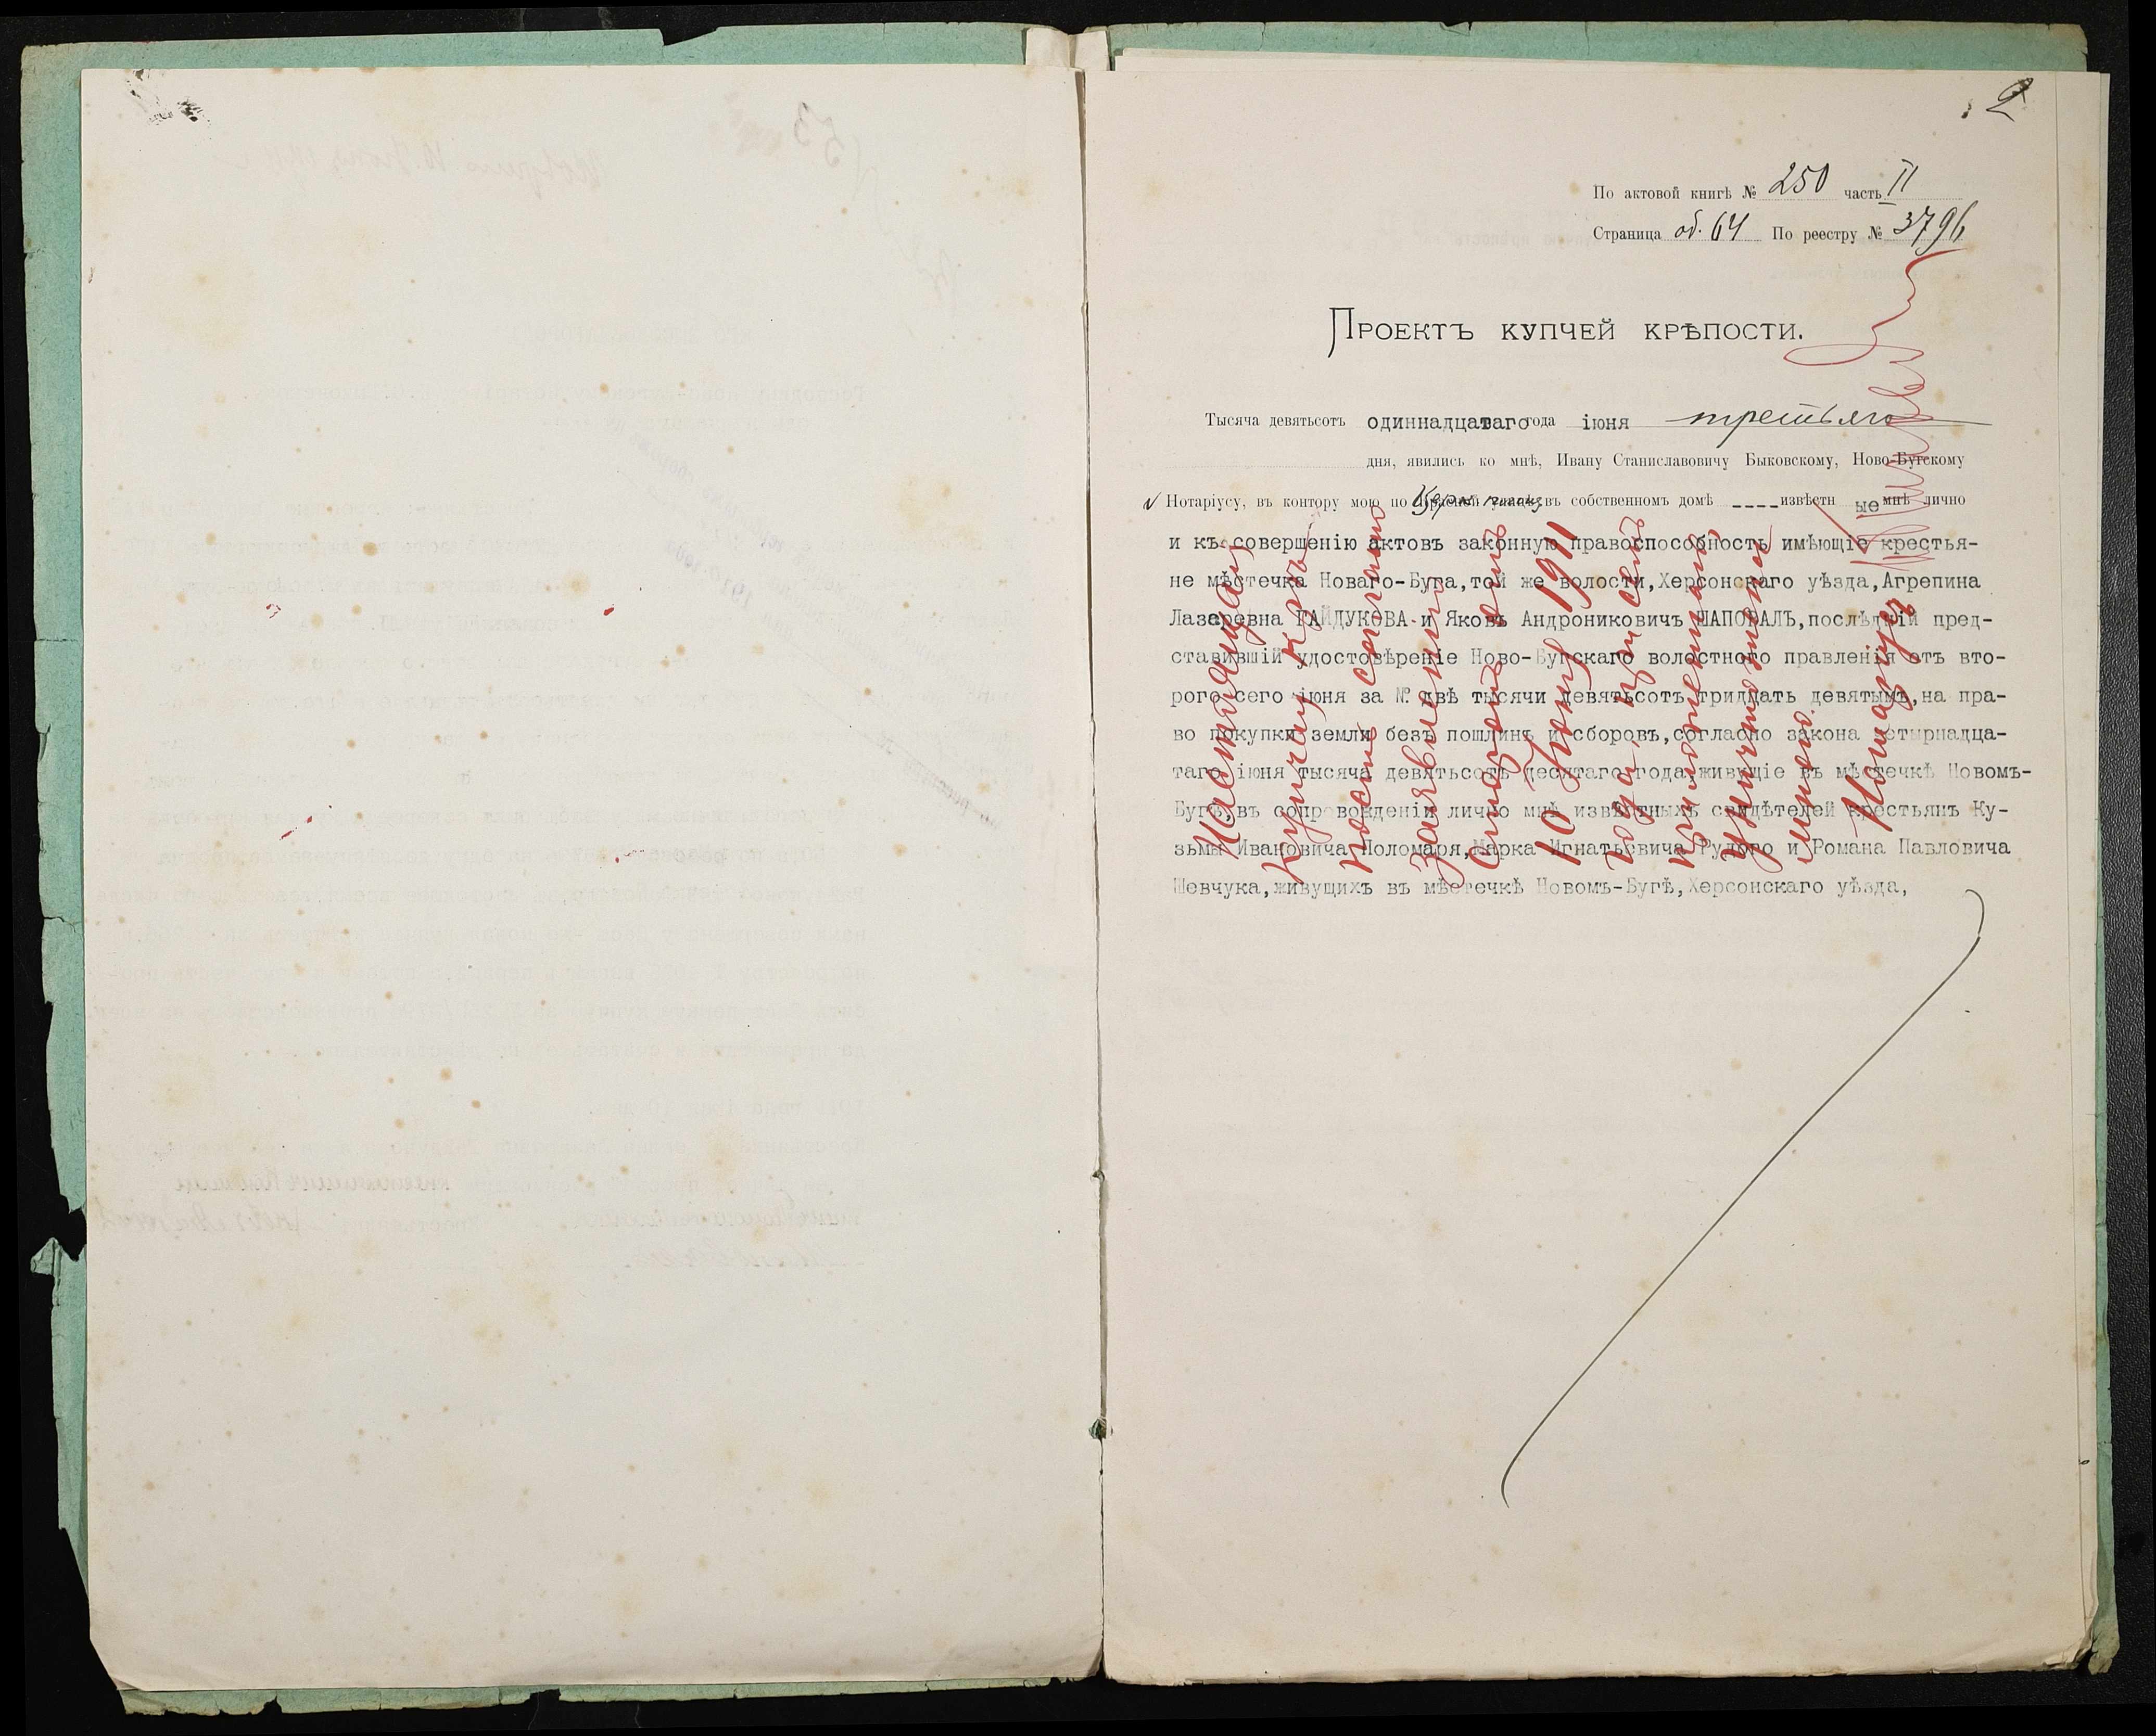 2
По актовой книгѣ № 250 часть II
Страница об. 64 По реестру № 3796
Проектъ купчей крѣпости.
Тысяча девятьсотъ одиннадцатаго года іюня третьяго
дня, явились ко мнѣ, Ивану Станиславовичу Быковскому, Ново-Бугскому
Нотаріусу, въ контору мою по въ собственномъ домѣ ---- извѣстн ые мнѣ лично
и къ совершенію актовъ законную правоспособность имѣющіе крестья-
не мѣстечка Новаго-Буга, той же волости, Херсонскаго уѣзда, Агрепина
Лазаревна ГАЙДУКОВА и Яковъ Андрониковичъ ШАПОВАЛЪ, послѣдній пред-
ставившій удостовѣреніе Ново-Бугскаго волостного правленія отъ вто-
рого сего іюня за № двѣ тысячи девятьсотъ тридцать девятымъ, на пра-
во покупки земли безъ пошлинъ и сборовъ, согласно закона четырнадца-
таго іюня тысяча девятьсотъ десятаго года, живущіе въ мѣстечкѣ Новомъ-
Бугѣ, въ сопровожденіи лично мнѣ извѣстныхъ свидѣтелей крестьянъ Ку-
зьмы Ивановича Поломаря, Марка Игнатьевича Рудого и Романа Павловича
Шевчука, живущихъ въ мѣстечкѣ Новомъ-Бугѣ, Херсонскаго уѣзда,
Настоящая
Купчая крѣ-
пость согласно
заявленію
сторонъ отъ
10 Іюня 1911
года, при семъ
приложенный
уничтожена
мною.
Нотаріусъ